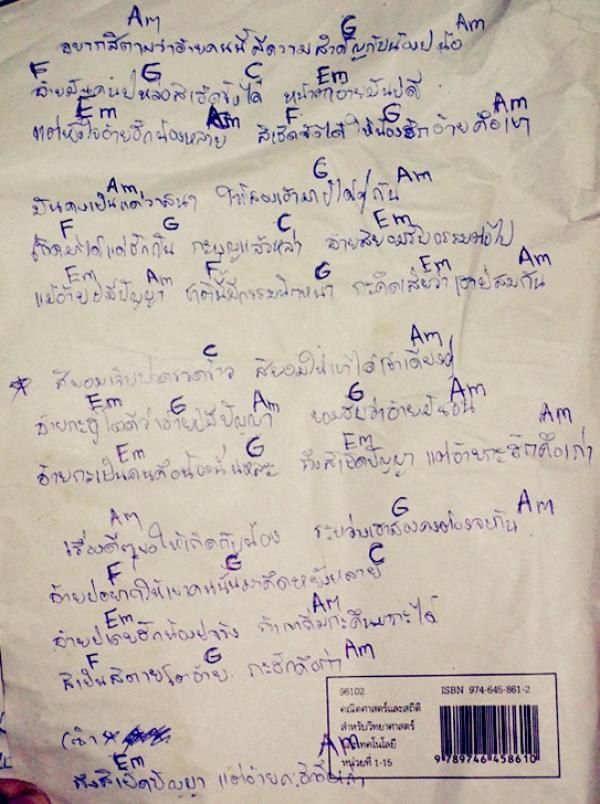 Am G Am
อยากสิถามว่าอ้ายคนนี้ มีความสำคัญกับน้องบ่น้อ
F G C Em
อ้ายมันคนบ่หล่อ สิเฮ็ดจั่งได๋ หน้าตาอ้ายมันบ่ดี
Em Am F G Am
แต่หัวใจอ้ายฮักน้องหลาย สิเฮ็ดจั่งได๋ ให้น้องฮักอ้ายคือเขา
Am G Am
มันคงเป็นแค่วาสนา ให้สองเฮามาบ่ได้คู่กัน
F G C Em
ได้แค่ฮักกัน กะบุญแล้วหล่า อ้ายสิยอมรับกรรมต่อไป
Em Am F G Em Am
แม้อ้ายบ่มีปัญญา ชาตินี้มีกรรมนักหนา กะคึดเสียว่าเฮาบ่สมกัน
C Am
* สิยอมเจ็บปวดรวดร้าว สิยอมให้เขาได้เจ้าเคียงคู่
Em G Am G Am
อ้ายกะฮู้ โตดีว่าอ้ายบ่มีปัญญา ยอมรับว่าอ้ายมันจน
Em G Em Am
อ้ายกะเป็นคนคือน้องนั่นหละ ถึงสิเบิดปัญญา แต่อ้ายกะฮักคือเก่า
Am G Am
เรื่องดีๆ บ่ให้เกิดกับน้อง ระหว่างเฮาสองคงต้องจบกัน
F G C
อ้ายบ่อยากให้เขาคนนั้นมาคึดหยังหลาย
Em Am
อ้ายบ่เคยฮักน้องบ่จริง ถ้าเขาถิ่มกะคืนมากะได้
F G Am
สิเป็นสิตายโตอ้าย กะฮักคือเก่า
(ซ้ำ *
Em Am
ถึงสิเบิดปัญญา แต่อ้ายกะฮักคือเก่า
96102 ISBN 974-645-861-2
คณิตศาสตร์และสถิติ
สำหรับวิทยาศาสตร์
เทคโนโลยี
หน่วยที่ 1-15
9 789746 458610